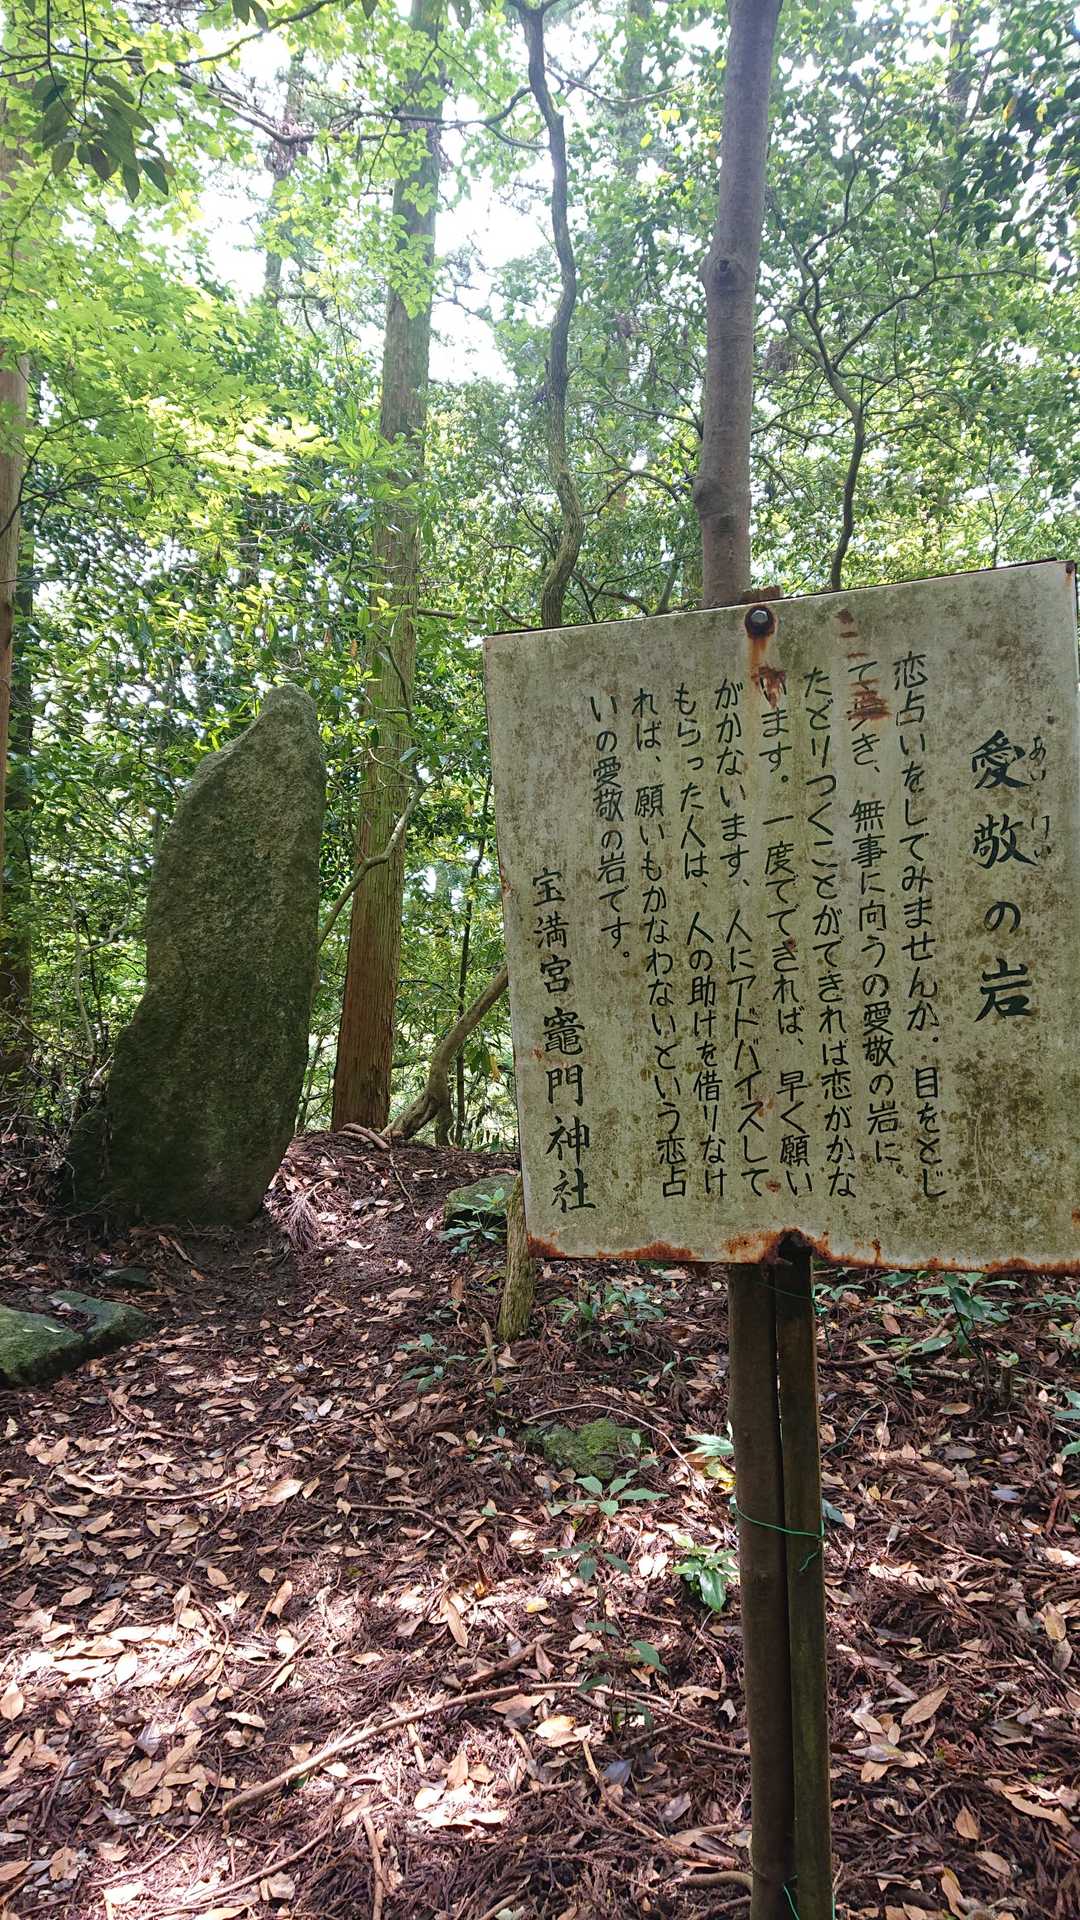 愛敬の岩
あいけい
恋占いをしてみませんか。目をとじ
て歩き、無事に向うの愛敬の岩に
たどりつくことができれば恋がかな
います。一度でできれば、早く願い
がかないます、人にアドバイスして
もらった人は、人の助けを借りなけ
れば、願いもかなわないという恋占
いの愛敬の岩です。
宝満宮竈門神社